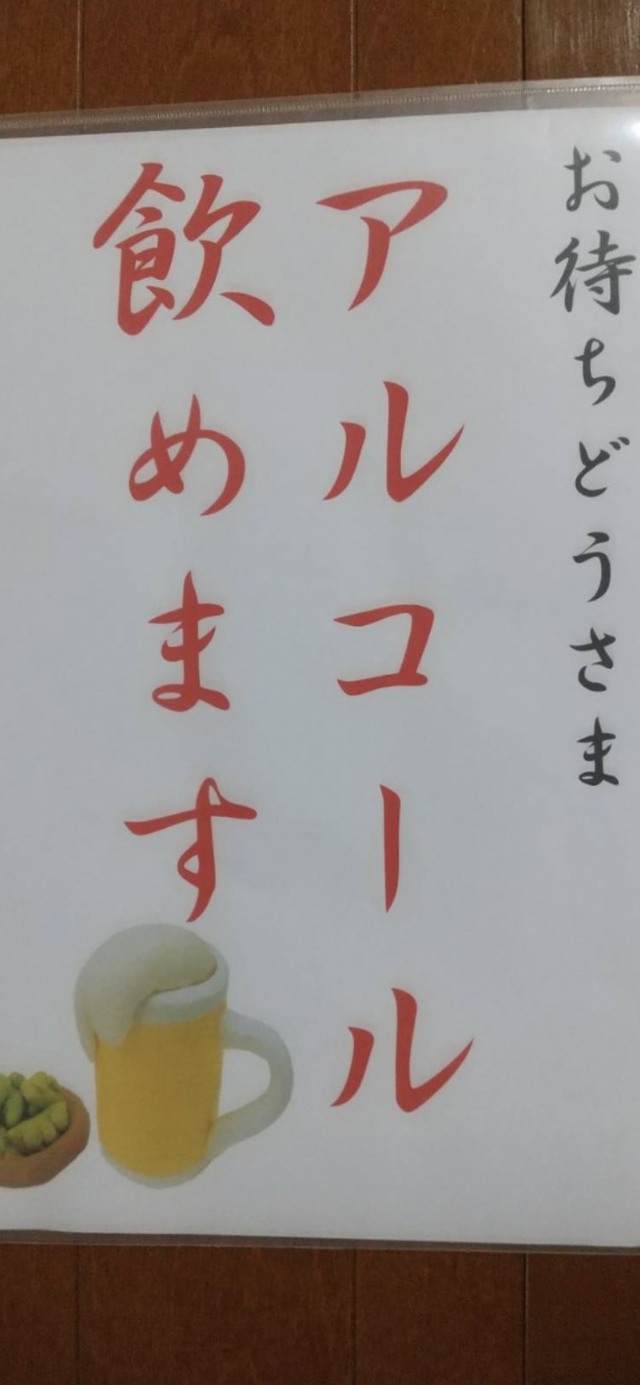 お待ちどうさま
アルコール
飲めます